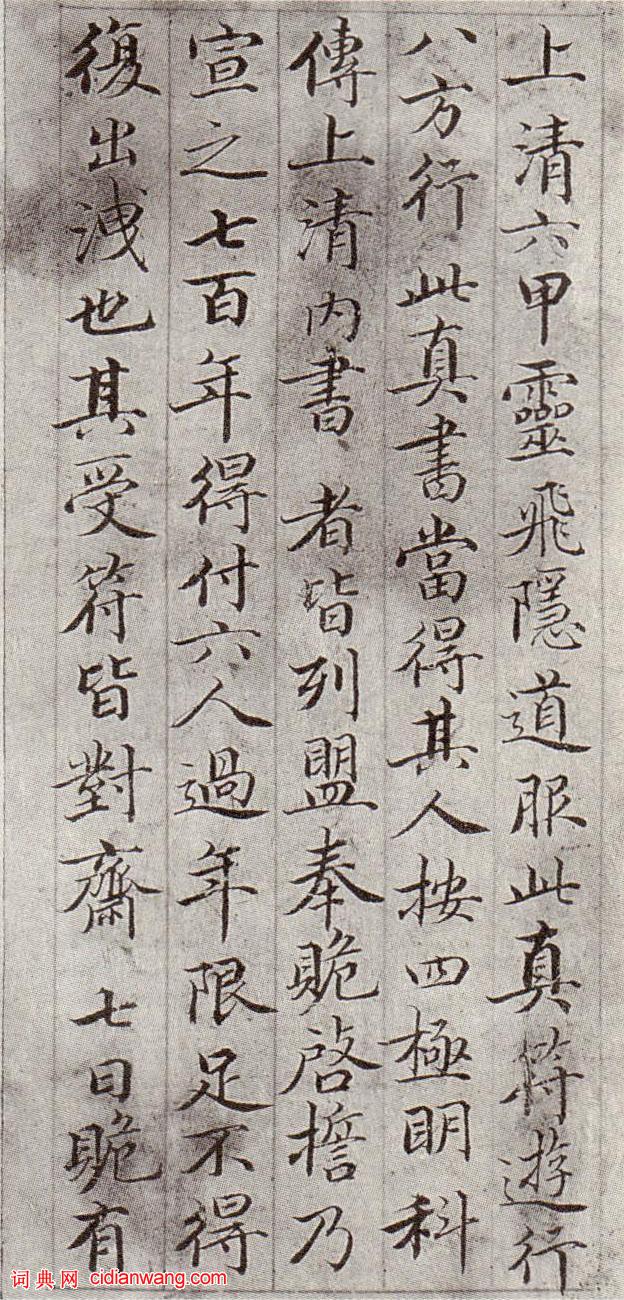 上清六甲靈飛隱道服此真符遊行
八方行此真書當得其人按四極明科
傳上清內書者皆列盟奉䞈啓擔乃
宣之七百年得付六人過年限足不得
復出洩也其受符皆對齋七日䞈有
词典网 cidianwang.com